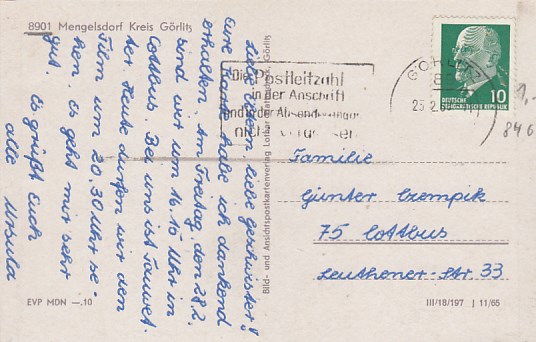 8901 Mengelsdorf Kreis Görlitz
Liebe Eltern, liebe Geschwister!
Eure Karte habe ich dankend
erhalten. Am Freitag, den 28.2.
sind wir um 16.15 Uhr in
Cottbus. Bei uns ist Tauwet-
ter. Heute dürfen wir den
Film um 20.30 Uhr se-
hen. Es geht mir sehr
gut.
Es grüßt Euch
alle Ursula
Die Postleitzahl
in der Anschrift
und in der Absenderangabe
nicht vergessen
GÖRLITZ
10
DEUTSCHE
DEMOKRATISCHE REPUBLIK
1,-
846
Familie
Günter Czempik
75 Cottbus
Leuthener-Str. 33
Bild- und Ansichtspostkartenverlag Lothar Görlitz
EVP MDN —.10
III/18/197 J 11/65